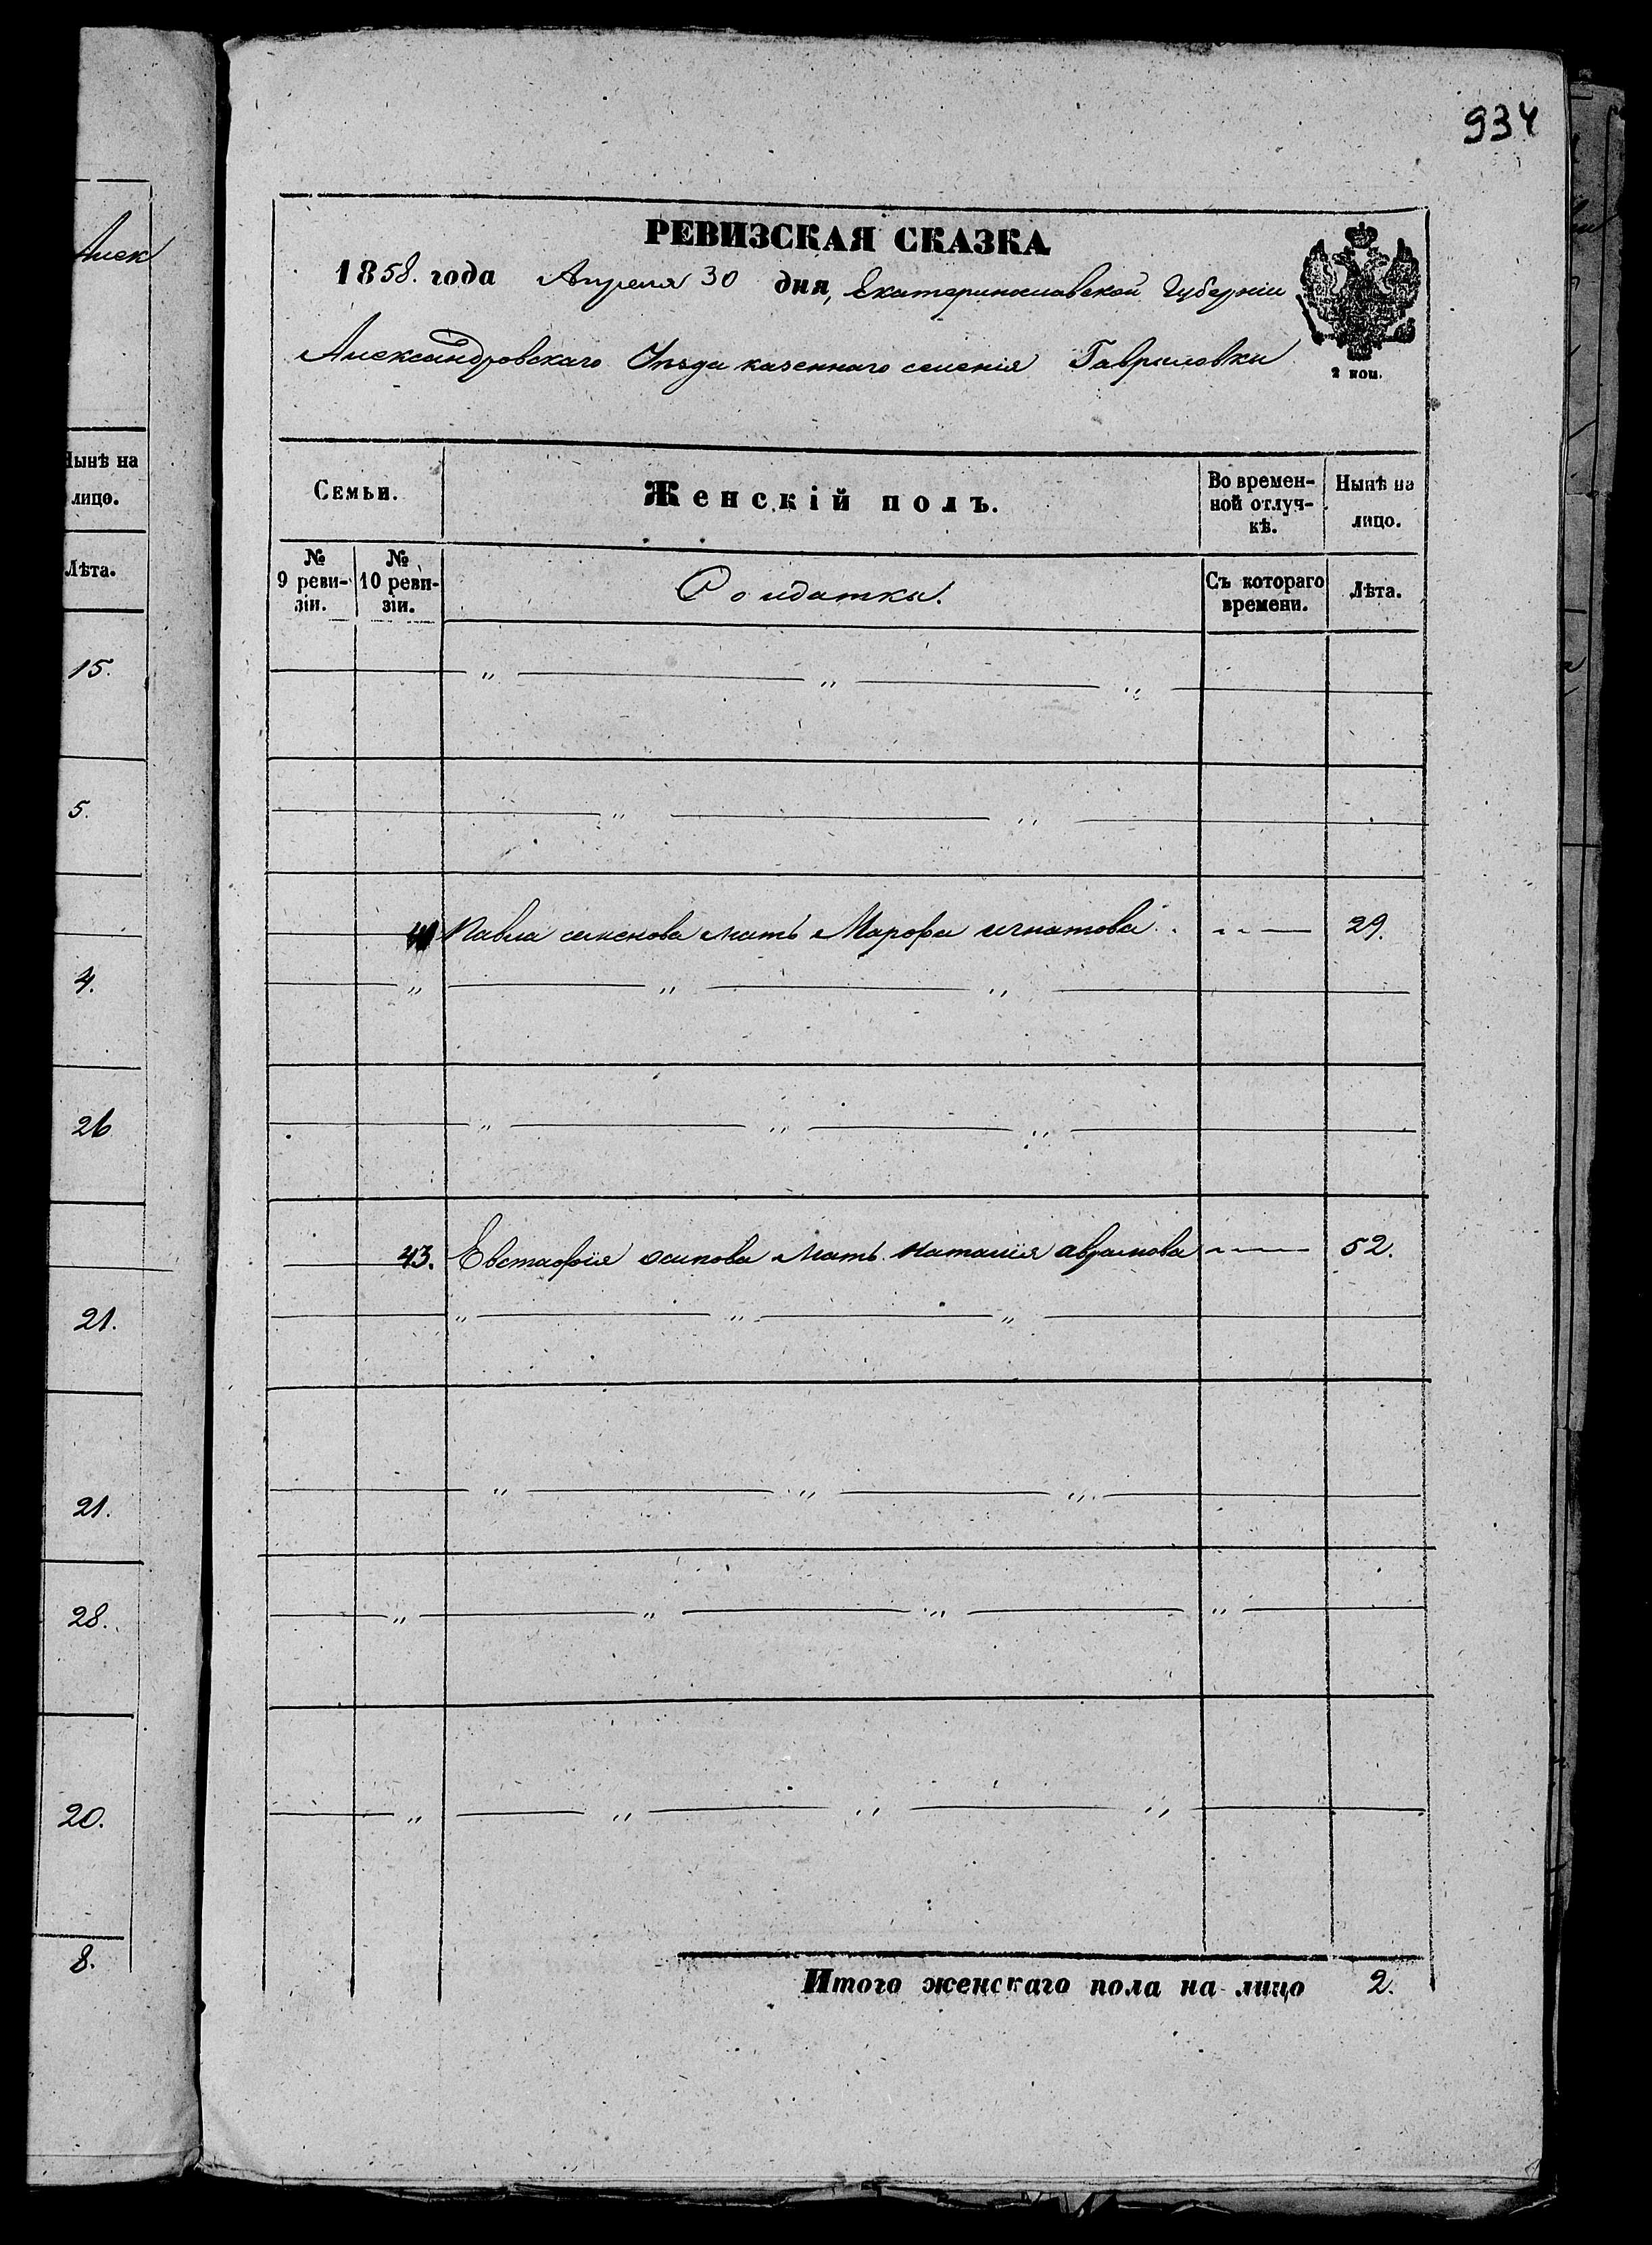 934
РЕВИЗСКАЯ СКАЗКА
1858. года Апреля 30 дня, Екатеринославской Губерніи
Александровскаго Уѣзда казеннаго селенія Гавриловки
2 коп.
Семьи.
Женскій полъ.
Во времен-
ной отлуч-
кѣ.
Нынѣ на
лицо.
№
9 реви-
зіи.
№
10 реви-
зіи.
Солдатки.
Съ котораго
времени.
Лѣта.
Павла мать Марфа игнатова 29.
43. Евстафія осипова мать наталія аврамова 52.
Итого женскаго пола на лицо 2.
Алек
Нынѣ на
лицо.
Лѣта.
15.
5.
4.
26
21.
21.
28.
20.
8.